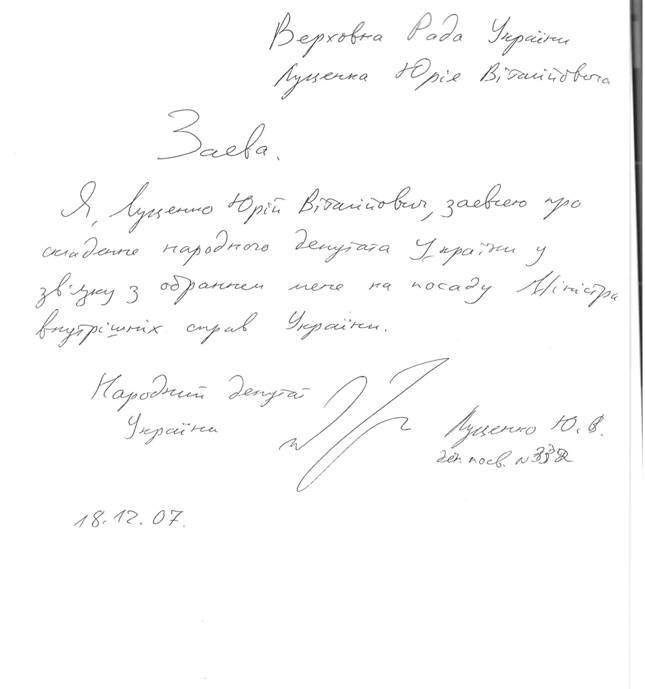 Верховна Рада України
Луценка Юрія Віталійовича
Заява.
Я, Луценко Юрій Віталійович, заявляю про
складення народного депутата України у
зв'язку з обранням мене на посаду Міністра
внутрішніх справ України.
Народний депутат
України
Луценко Ю. В.
деп. посв. №
18.12.07.